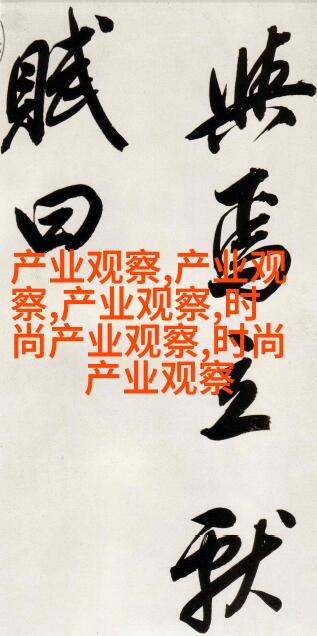 與焉立獻
賦曰
产业观察,产业观
察,产业观察,时
尚产业观察,时尚
产业观察